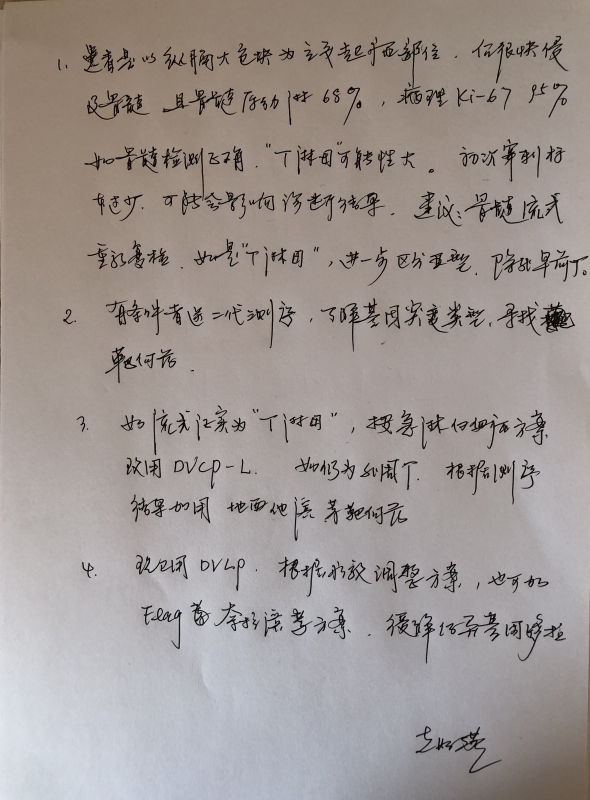 1. 患者是以纵膈大包块为主要起病部位，但很快侵
及骨髓 且骨髓原幼淋68%，病理Ki-67 95%
如骨髓检测正确，"T淋母"可能性大。初次审判标
本过少，可能会影响诊断结果。建议：骨髓流式
重新复检。如是"T淋母"，进一步区分亚型，除外早前T。
2. 有条件者送二代测序，了解基因突变类型，寻找
靶向药.
3. 如流式证实为"T淋母"，按急淋白血病方案
改用DVCP-L. 如仍为外周T. 根据测序
结果加用 地西他滨等靶向药
4. 现已用DVLP. 根据疗效调整方案，也可加
Flag 奈拉滨等方案. 缓解后异基因移植